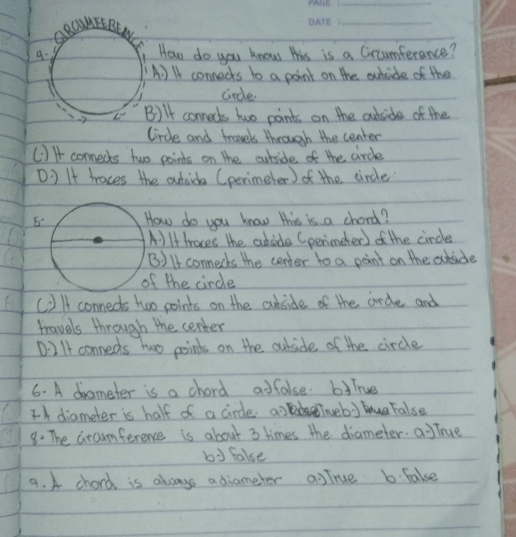 PAGE :
DATE :
CIRCUMFERENCE
4. How do you know this is a Circumference?
A:) It connects to a point on the outside of the
circle.
B) It connects two points on the outside of the
Circle and travels through the center
C:) It connects two points on the outside of the circle
D:) It traces the outside (perimeter) of the circle.
5. How do you know this is a chord?
A) It traces the outside (perimeter) of the circle
B:) It connects the center to a point on the outside
of the circle
C:) It connects two points on the outside of the circle and
travels through the center
D:) It connects two points on the outside of the circle
6. A diameter is a chord a:) false. b:) True
7. A diameter is half of a circle a:) True b:) False
8. The circumference is about 3 times the diameter. a:) True
b:) false
9. A chord is always a diameter a:) True b. false